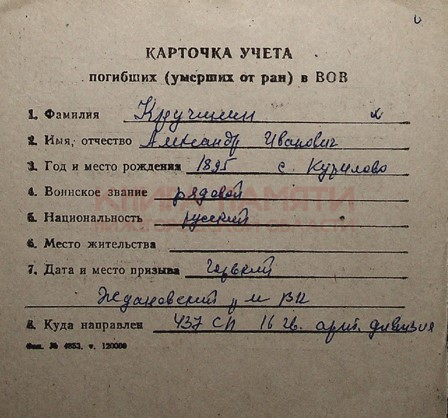 КАРТОЧКА УЧЕТА
погибших (умерших от ран) в ВОВ
1. Фамилия Кручинин
2. Имя, отчество Александр Иванович
3. Год и место рождения 1895 с. Курилово
4. Воинское звание рядовой
КНИГА ПАМЯТИ
5. Национальность русский
НИЖЕГОРОДСКОЙ ОБЛАСТИ
6. Место жительства
7. Дата и место призыва Горький
Ждановский РВК
8. Куда направлен 437 СП 16 гв. арт. дивизия
Фил. № 4853, т. 120000